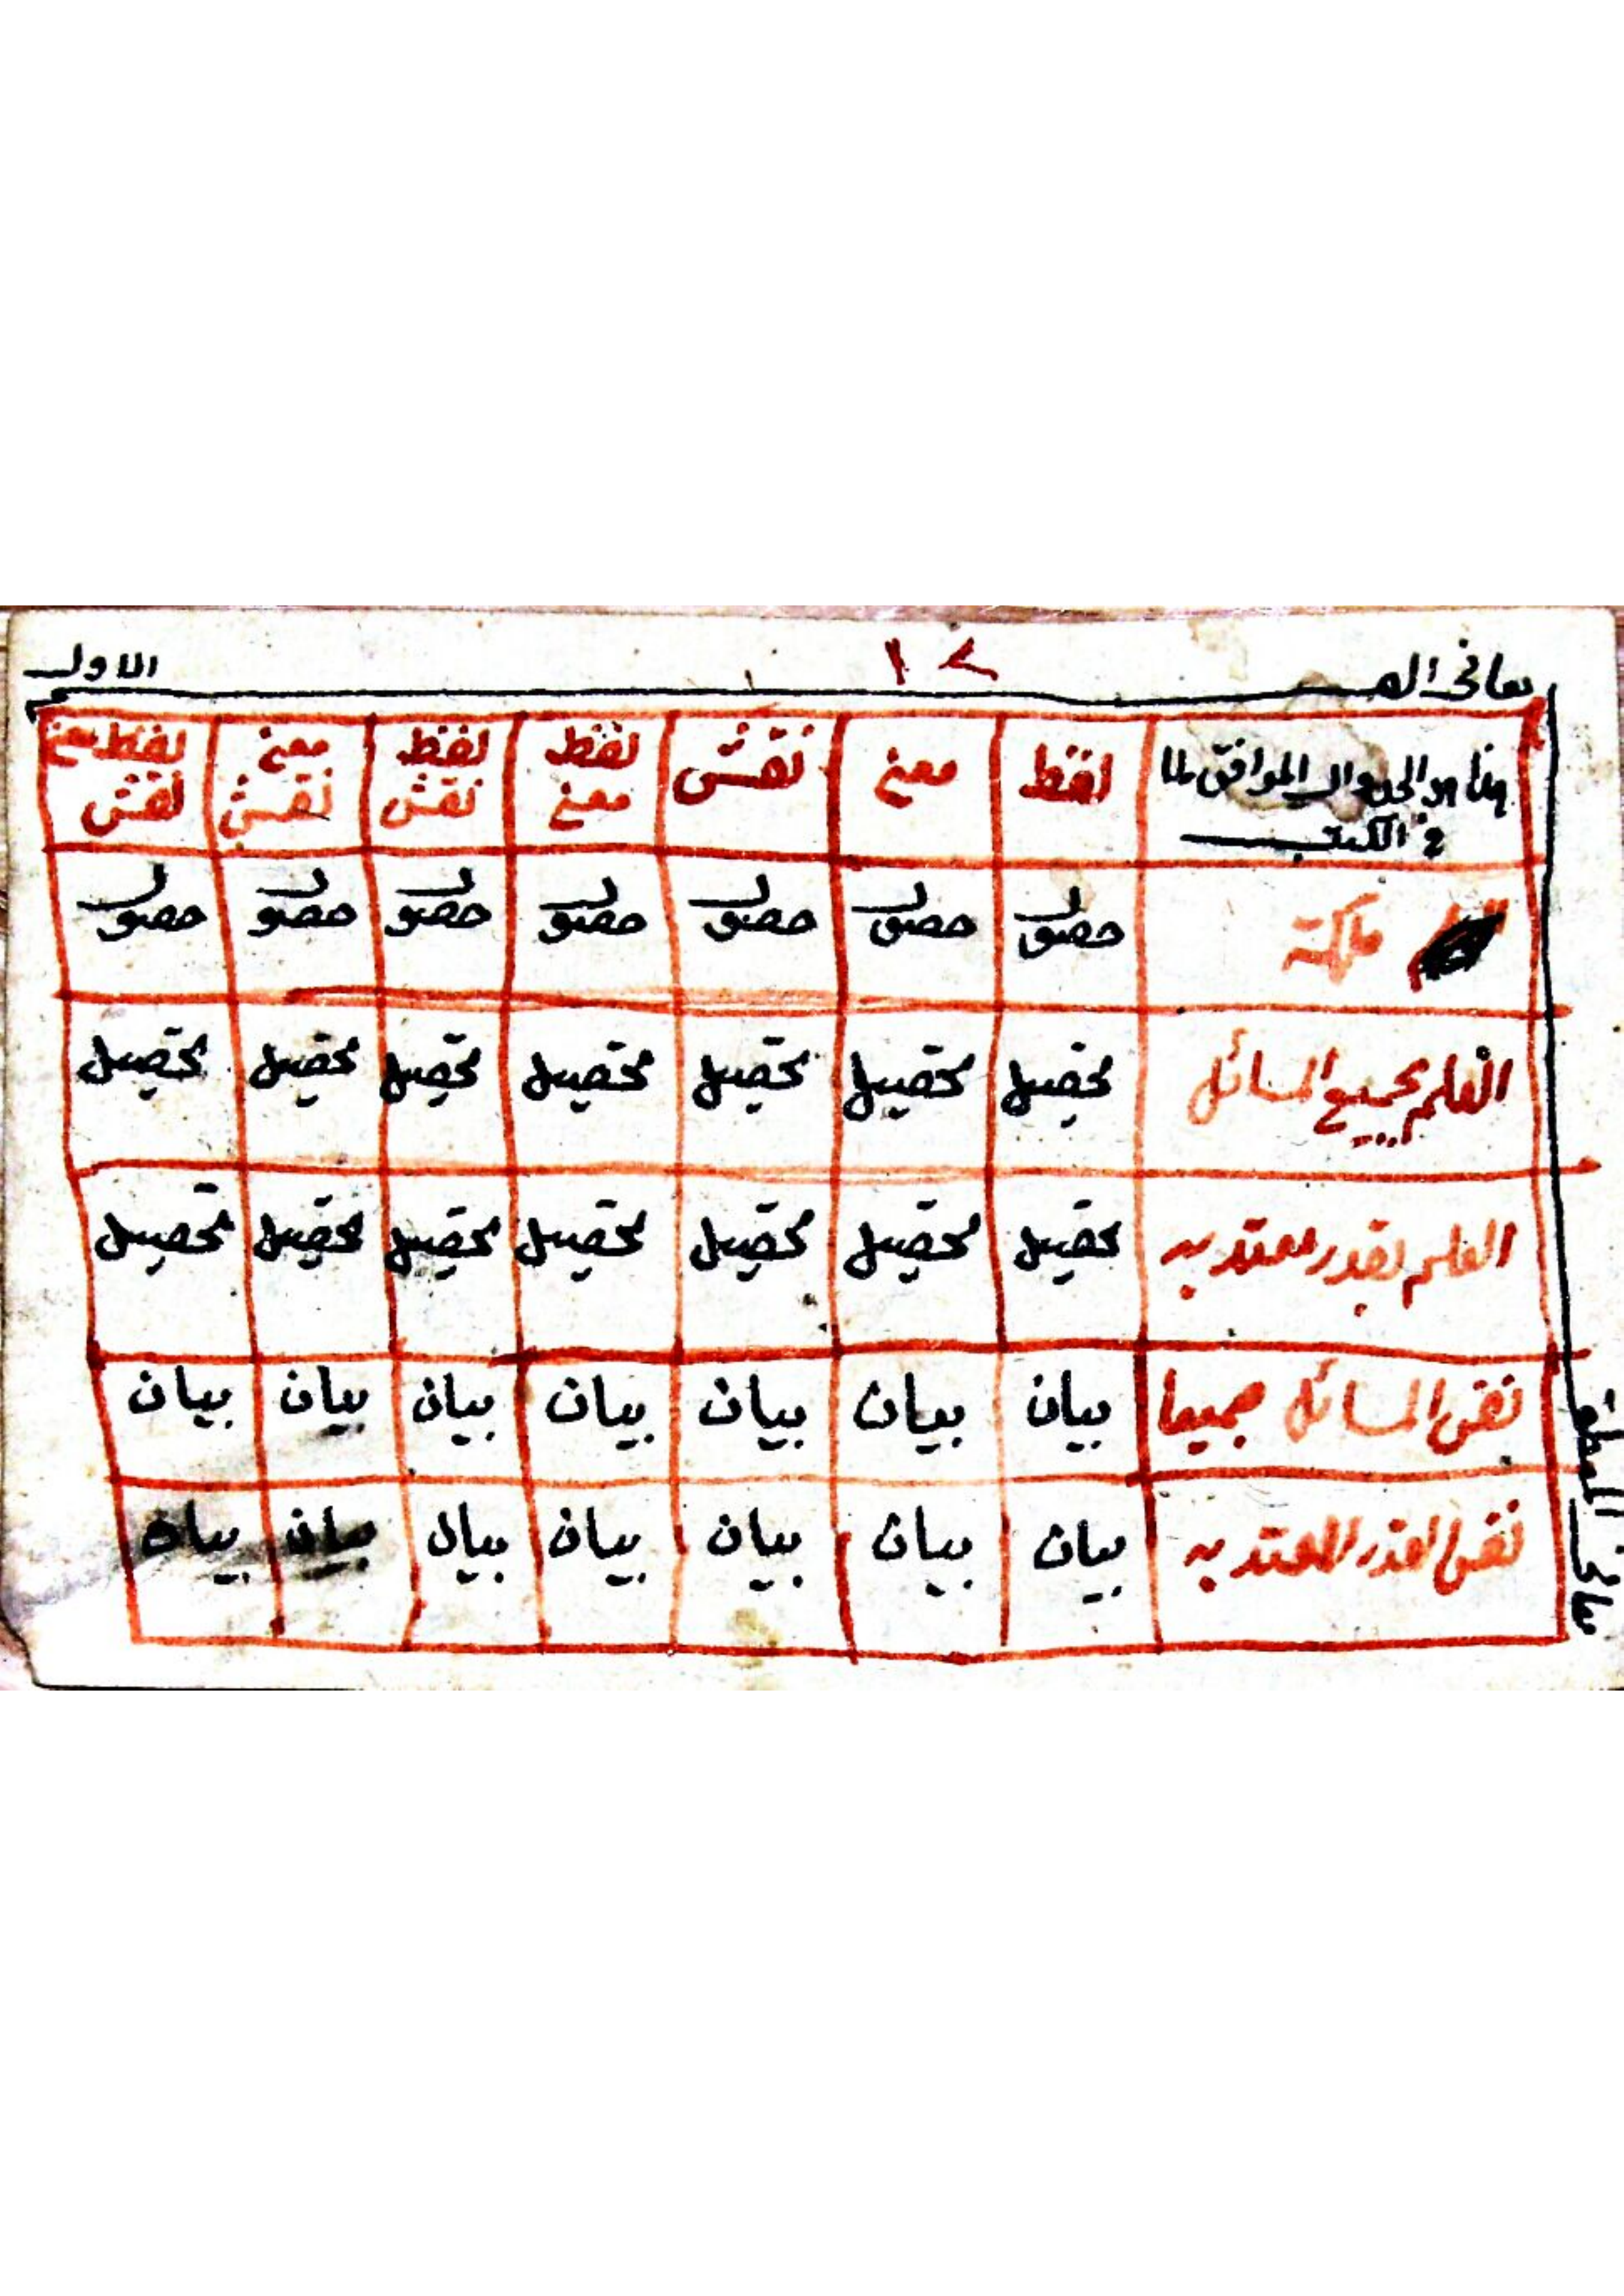 معانی القسم الاول
هذا هو الجدول الموافق لما فی الکتب لفظ معنی نقش لفظ معنی لفظ نقش معنی نقش لفظ معنی نقش
ملکة حصول حصول حصول حصول حصول حصول حصول
العلم بجمیع المسائل تحصیل تحصیل تحصیل تحصیل تحصیل تحصیل تحصیل
العلم بقدر معتد به تحصیل تحصیل تحصیل تحصیل تحصیل تحصیل تحصیل
نفس المسائل جمیعا بیان بیان بیان بیان بیان بیان بیان
نفس القدر المعتد به بیان بیان بیان بیان بیان بیان بیان
معانی المنطق